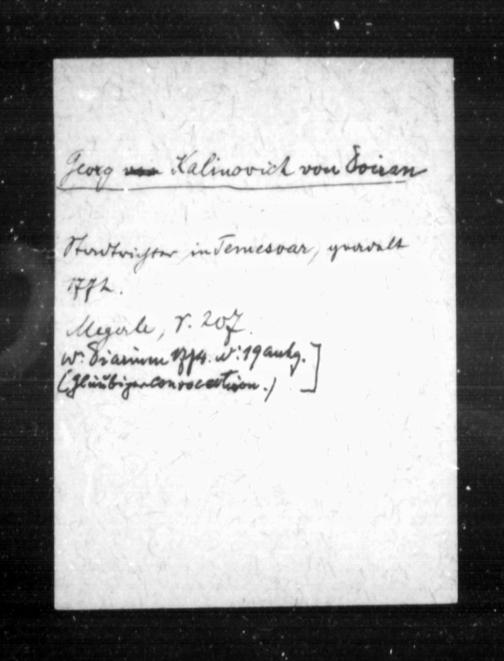 Georg von Kalinovich von Doiran
Stadtrichter in Temesvar, geadelt
1772.
Megerle, S. 207.
W: Diarium 1774. N: 19 anhg.]
(Gläubigerconvocation.)